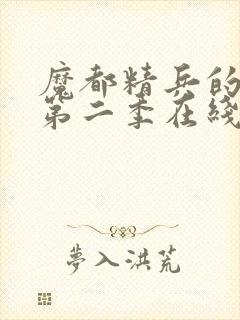 魔都精兵的
第二季在线
夢入洪荒